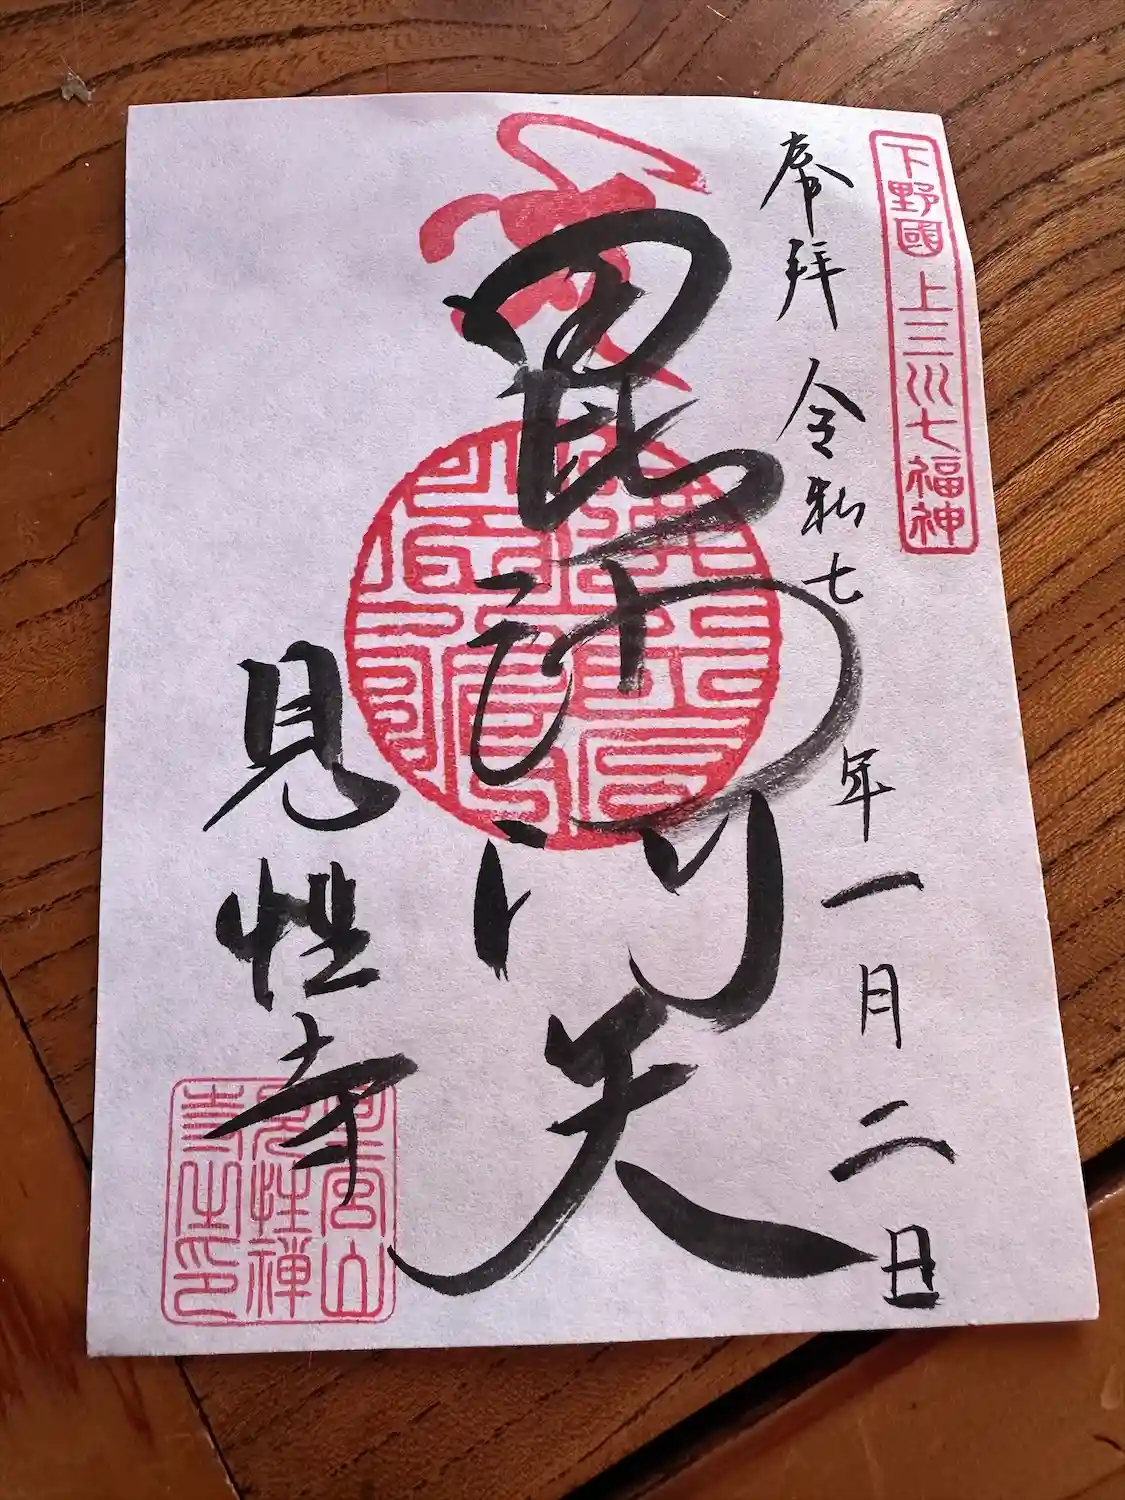 下野國上三川七福神
奉拝 令和七年一月二日
毘沙門天
見性寺
見性禅
寺之印